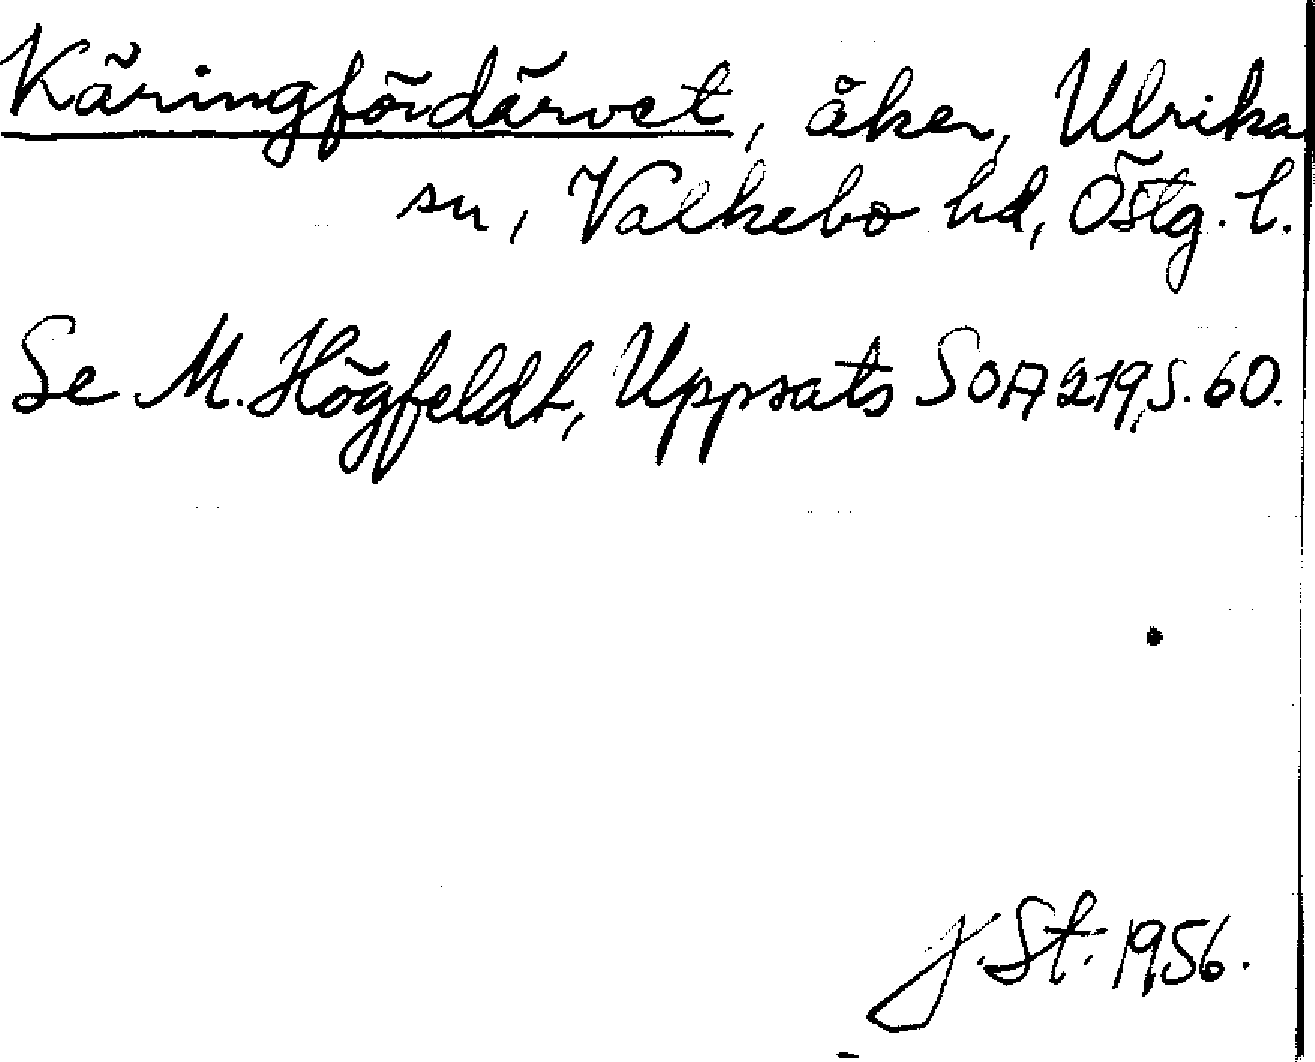 Käringfördärvet, åker, Ulrika
sn, Valkebo hd, Östg. l.
Se M. Högfeldt, Uppsats SOA 219, s. 60.
J. St. 1956.